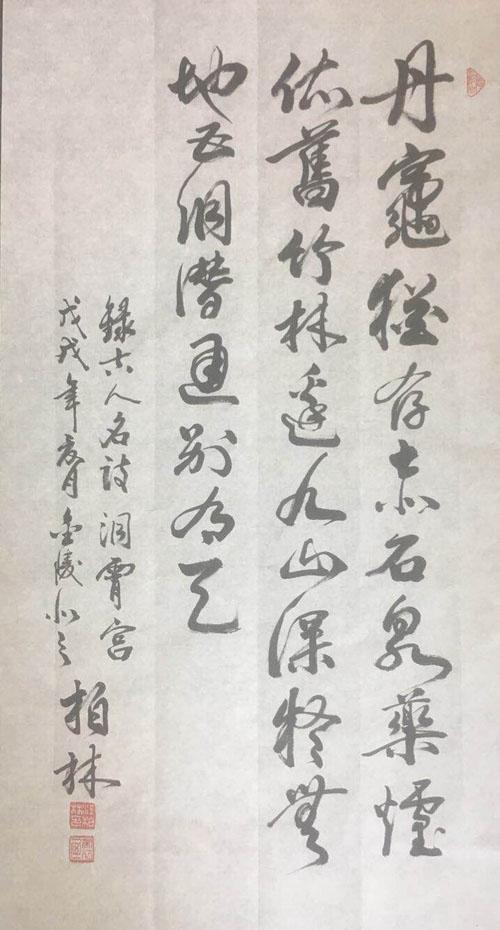 丹竈猶存赤石泉藥爐
依舊竹林邊九山深疑無
地五洞潛通別有天
錄古人名詩洞霄宮
戊戌年夏月金陵柏林